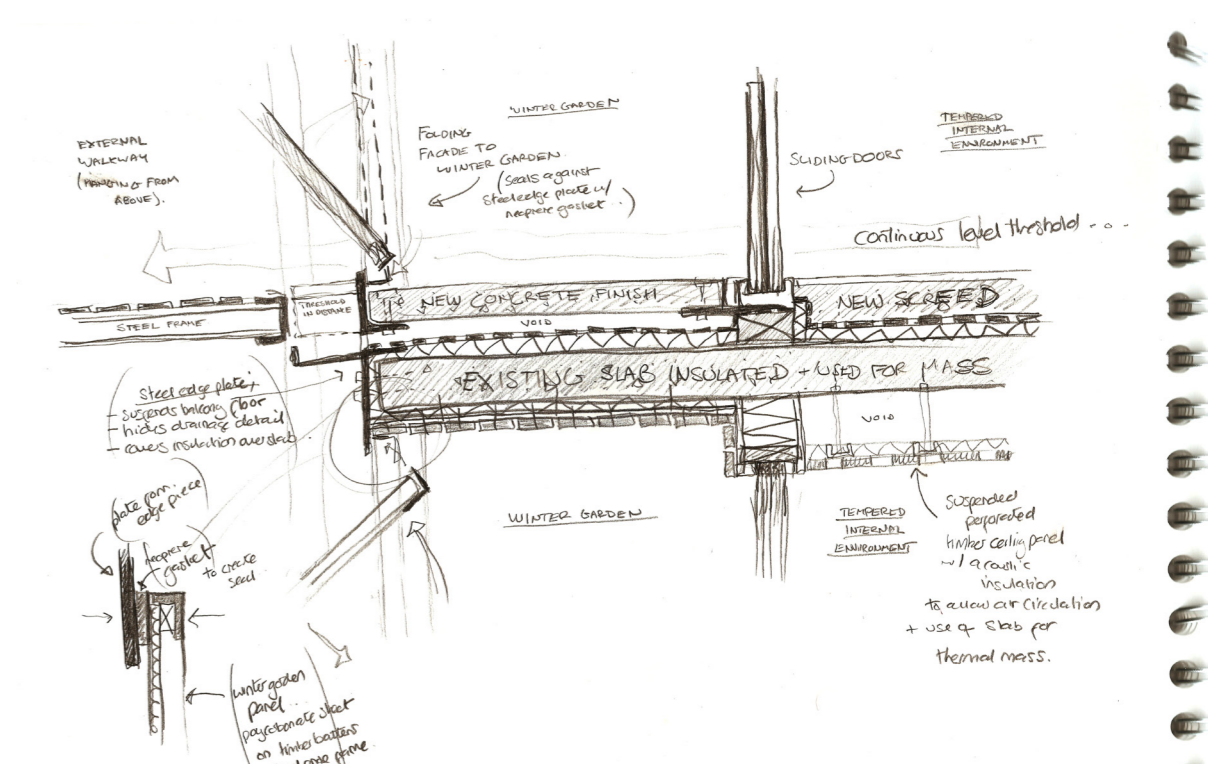 WINTER GARDEN
EXTERNAL
WALKWAY
(HANGING FROM
ABOVE).
FOLDING
FACADE TO
WINTER GARDEN.
(seals against
steel edge plate w/
neoprene gasket..)
SLIDING DOORS
TEMPERED
INTERNAL
ENVIRONMENT
continuous level threshold - - -
THRESHOLD
IN DISTANCE
NEW CONCRETE FINISH
NEW SCREED
STEEL FRAME
VOID
EXISTING SLAB INSULATED + USED FOR MASS
Steel edge plate;
- suspends balcony floor
- hides drainage detail
- covers insulation over slab.
VOID
plate form.
edge piece
neoprene
gasket
to create
seal
WINTER GARDEN
TEMPERED
INTERNAL
ENVIRONMENT
suspended
perforated
timber ceiling panel
w/ acoustic
insulation
to allow air circulation
+ use of slab for
thermal mass.
winter garden
panel...
polycarbonate sheet
on timber battens
frame.